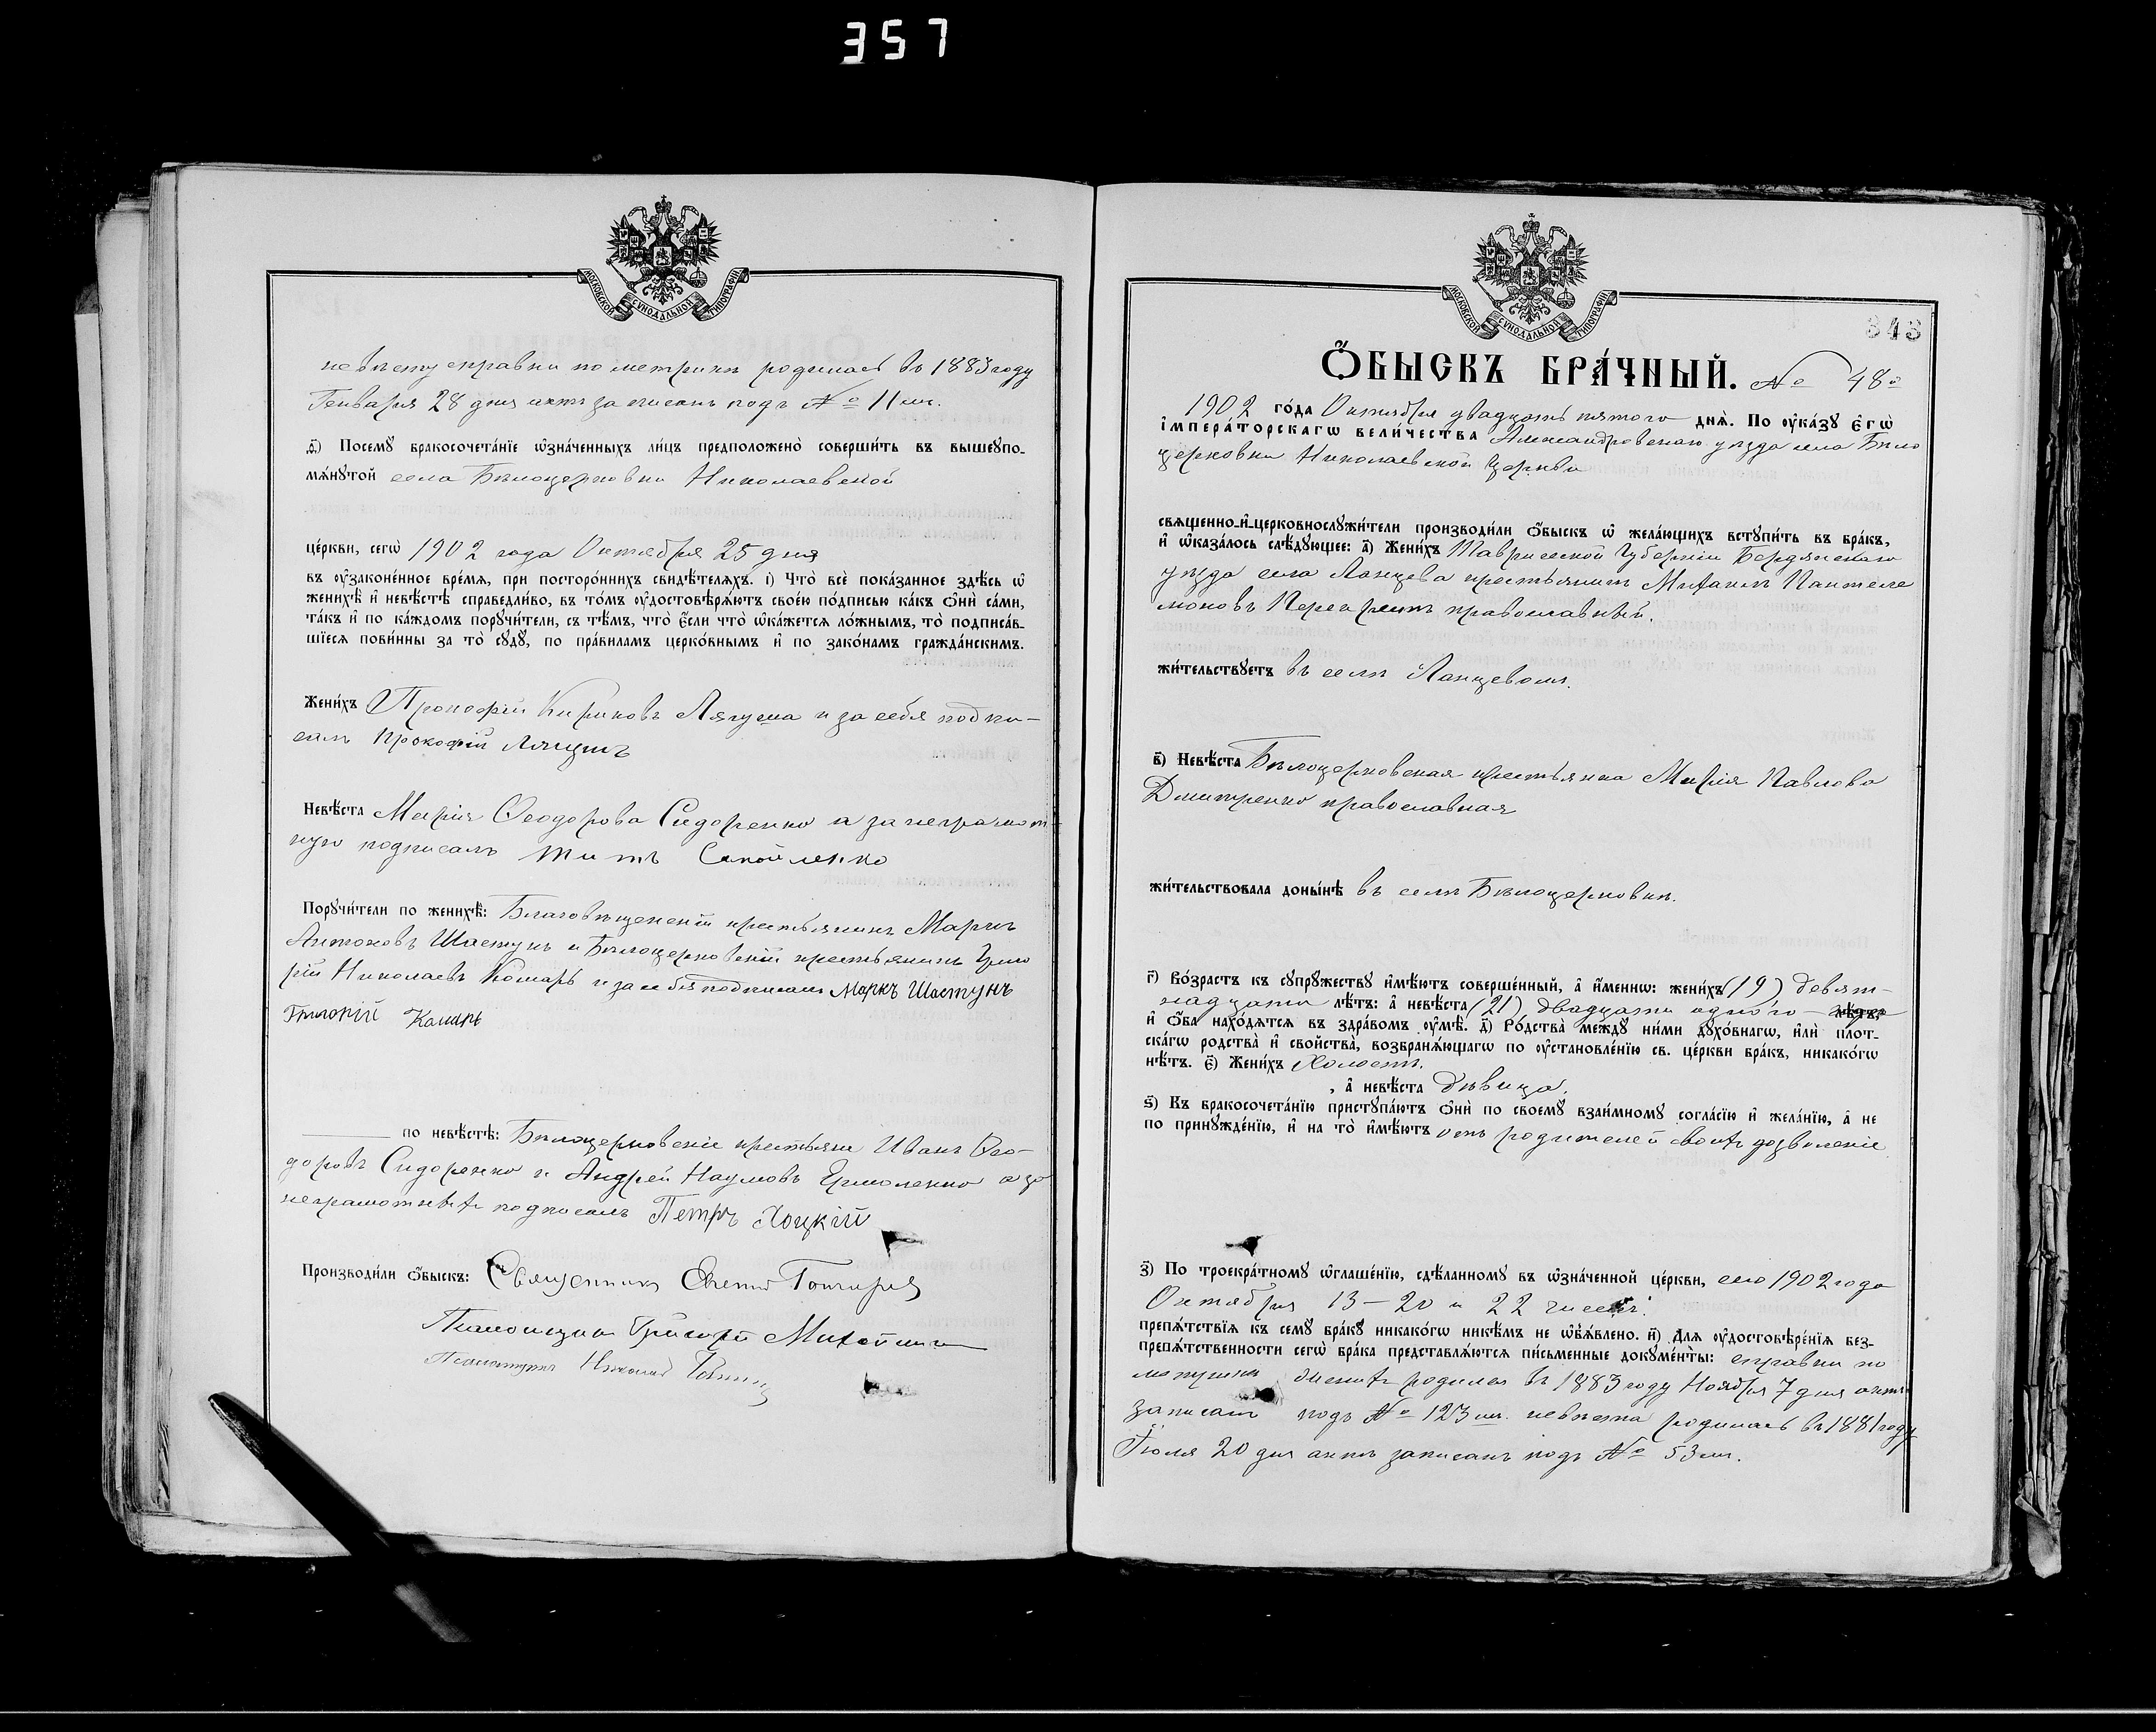 357
МОСКОВСКОЙ СѴНОДАЛЬНОЙ ТИПОГРАФІИ
невѣсту справки по метрикѣ родилась въ 1883 году
Генваря 28 дня актъ записанъ подъ № 11 мъ.
ѳ҃) Посемꙋ бракосочета́нїе ѡ҆зна́ченныхъ ли́цъ предположено̀ соверши́ть въ вышеꙋпо-
мѧ́нꙋтой села Бѣлоцерковки Николаевской
це́ркви, сегѡ̀ 1902 года Октября 25 дня
въ ᲂу҆законе́нное вре́мѧ, при посторо́ннихъ свидѣ́телѧхъ. і҃) Что̀ всѐ пока́занное здѣ́сь ѡ҆
женихѣ̀ и҆ невѣ́стѣ справедли́во, въ то́мъ ᲂу҆достовѣрѧ́ютъ свое́ю по́дписью ка́къ ѻ҆нѝ са́ми,
та́къ и҆ по ка́ждомъ порꙋчи́тели, съ тѣ́мъ, что̀ є҆́сли что̀ ѡ҆ка́жетсѧ ло́жнымъ, то̀ подписа́в-
шїесѧ пови́нны за то̀ сꙋдꙋ̀, по пра́виламъ церко́внымъ и҆ по зако́намъ гражда́нскимъ.
Жени́хъ Прокофій Кириковъ Лягуша и за себя подпи-
салъ Прокофій
Невѣ́ста Марія Ѳеодорова Сидоренко а за неграмот-
ную подписалъ Титъ Самойленко
Порꙋчи́тели по женихѣ̀: Благовѣщенскій крестьянинъ Маркъ
Антоновъ Шастунъ и Бѣлоцерковскій крестьянинъ Григо
рій Николаевъ Комаръ и за себя подписали Маркъ Шастунъ
Григорій Комаръ
по невѣ́стѣ: Бѣлоцерковскіе крестьяне Иванъ Ѳео-
доровъ Сидоренко и Андрей Наумовъ Ермоленко а за
неграмотныхъ подписалъ Петръ Хоцкій
Производи́ли ѻ҆́быскъ: Священникъ
Псаломщикъ Григорій
Псаломщикъ Николай
МОСКОВСКОЙ СѴНОДАЛЬНОЙ ТИПОГРАФІИ
343
Ѻ҆́БЫСКЪ БРА́ЧНЫЙ. № 48й
1902 го́да Октября двадцать пятаго днѧ̀. По ᲂу҆ка́зꙋ є҆гѡ̀
і҆мпера́торскагѡ вели́чества Александровскаго уѣзда села Бѣло
церковки Николаевской церкви
свѧще́нно-и҆-церковнослꙋжи́тели производи́ли ѻ҆́быскъ ѡ҆ жела́ющихъ встꙋпи́ть въ бра́къ,
и҆ ѡ҆каза́лось слѣ́дꙋющее: а҃) Жени́хъ Таврической Губерніи Бердянскаго
уѣзда села Ланцева крестьянинъ Михаилъ Пантеле
моновъ православный.
жи́тельствꙋетъ въ селѣ Ланцевомъ.
в҃) Невѣ́ста Бѣлоцерковская крестьянка Марія Павлова
Дмитренко православная
жи́тельствовала доны́нѣ въ селѣ Бѣлоцерковкѣ.
г҃) Во́зрастъ къ сꙋпрꙋ́жествꙋ и҆мѣ́ютъ соверше́нный, а҆ и҆́меннѡ: жени́хъ (19) девят-
надцати лѣ́тъ: а҆ невѣ́ста (21) двадцати одного года лѣ́тъ,
и҆ ѻ҆́ба нахо́дѧтсѧ въ здра́вомъ ᲂу҆мѣ̀. д҃) Ро́дства междꙋ ни́ми дꙋхо́внагѡ, и҆лѝ пло́т-
скагѡ родства̀ и҆ сво́йства, возбранѧ́ющагѡ по ᲂу҆становле́нїю св. це́ркви бра́къ, никако́гѡ
нѣ́тъ. є҃) Жени́хъ Холостъ.
, а҆ невѣ́ста Дѣвица.
ѕ҃) Къ бракосочета́нїю пристꙋпа́ютъ ѻ҆нѝ по своемꙋ̀ взаи́мномꙋ согла́сїю и҆ жела́нїю, а҆ не
по принꙋжде́нїю, и҆ на то̀ и҆мѣ́ютъ отъ родителей своихъ дозволеніе
з҃) По троекра́тномꙋ ѡ҆глаше́нїю, сдѣ́ланномꙋ въ ѡ҆зна́ченной це́ркви, сего 1902 года
Октября 13 – 20 и 22 чиселъ.
препѧ́тствїѧ къ семꙋ̀ бра́кꙋ никако́гѡ никѣ́мъ не ѡ҆б̾ѧ́влено. и҃) Длѧ ᲂу҆достовѣре́нїѧ без-
препѧ́тственности сегѡ̀ бра́ка представлѧ́ютсѧ пи́сьменные докꙋме́нты: справки по
метрикѣ женихъ родился въ 1883 году Ноября 7 дня актъ
записанъ подъ № 123 мъ. невѣста родилась въ 1881 году
Іюля 20 дня актъ записанъ подъ № 53 мъ.